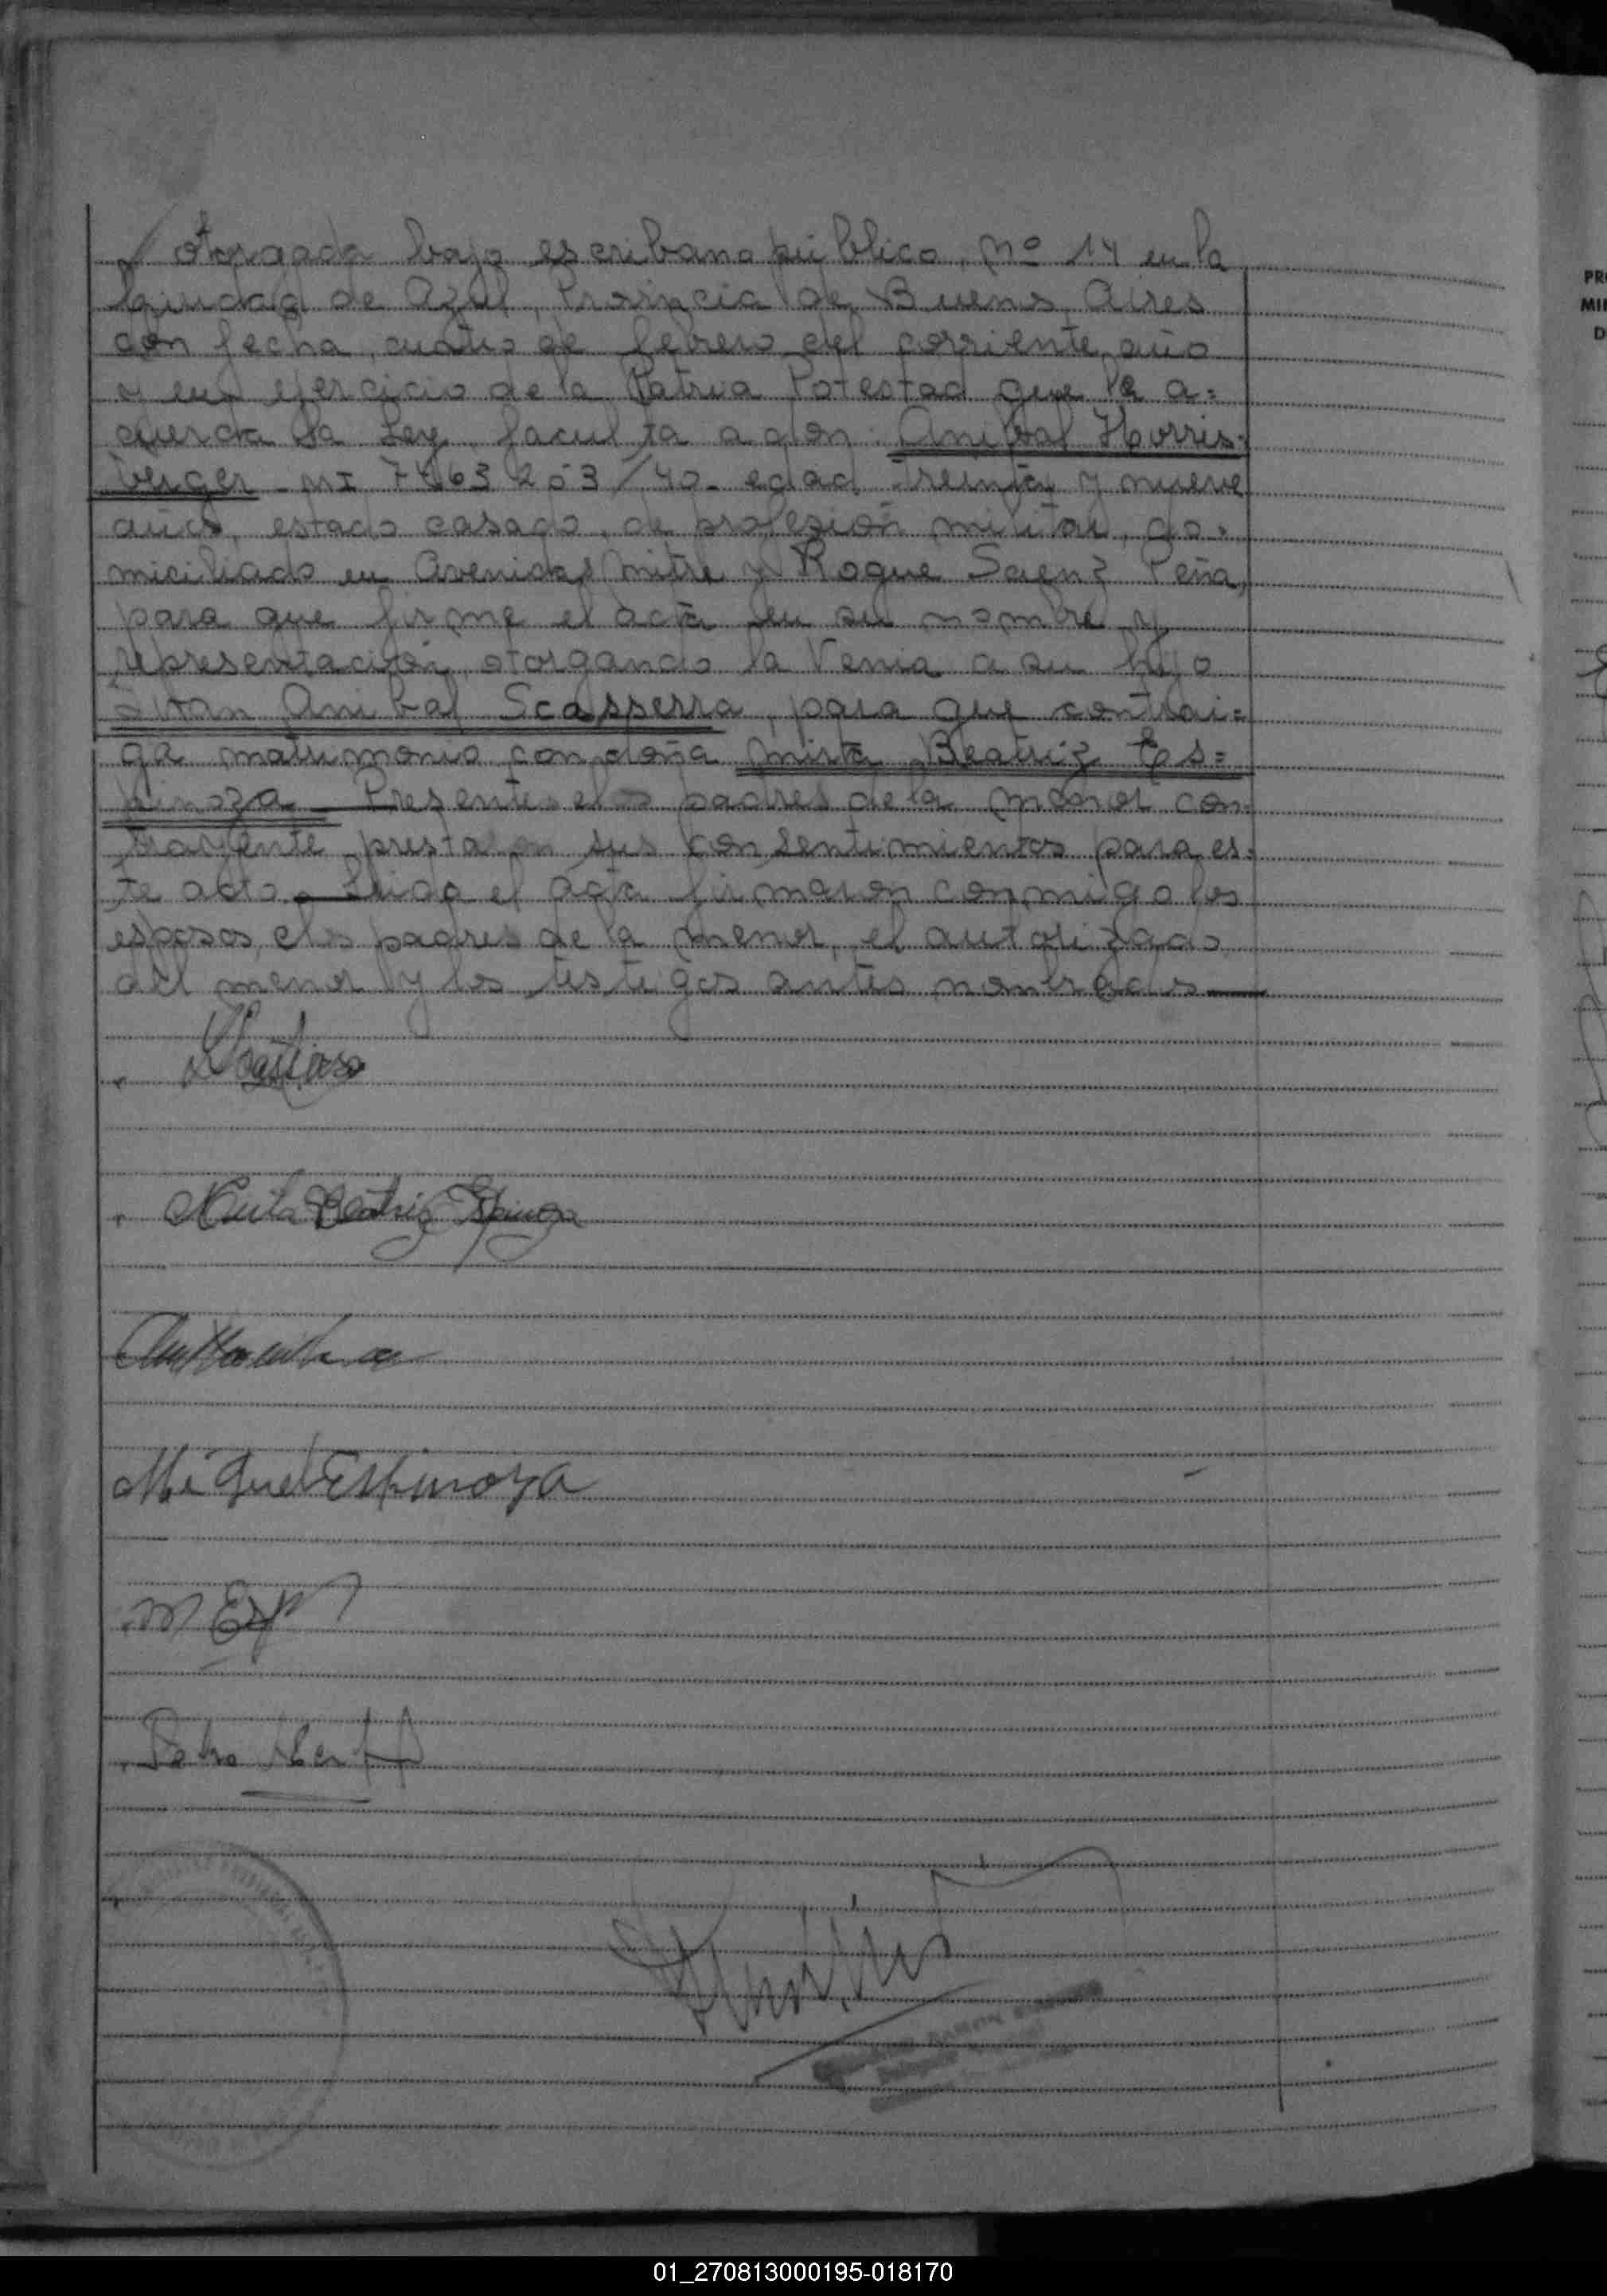 otorgada bajo escribano público, Nº 14 en la
ciudad de Azul, Provincia de Buenos Aires
con fecha, cuatro de febrero del corriente año
y en ejercicio de la Patria Potestad que le a=
cuerda la Ley, faculta a don: Anibal Horris=
berger - MI 7463203/40 - edad treinta y nueve
años, estado casado, de profesión militar, do=
miciliado en Avenidas Mitre y Roque Saenz Peña,
para que firme el acta en su nombre y
representación otorgando la Venia a su hijo
Anibal Scasserra, para que contrai=
ga matrimonio con doña Mirta Beatriz Es=
pinoza - Presentes los padres de la menor con=
trayente prestaron sus consentimientos para es=
te acto - Leida el acta firmaron conmigo los
esposos, los padres de la menor, el autorizado
del menor y los testigos antes nombrados -
Mirta Beatriz Espinoza
Miguel Espinoza
M Esp
PR
MI
D
01_270813000195-018170